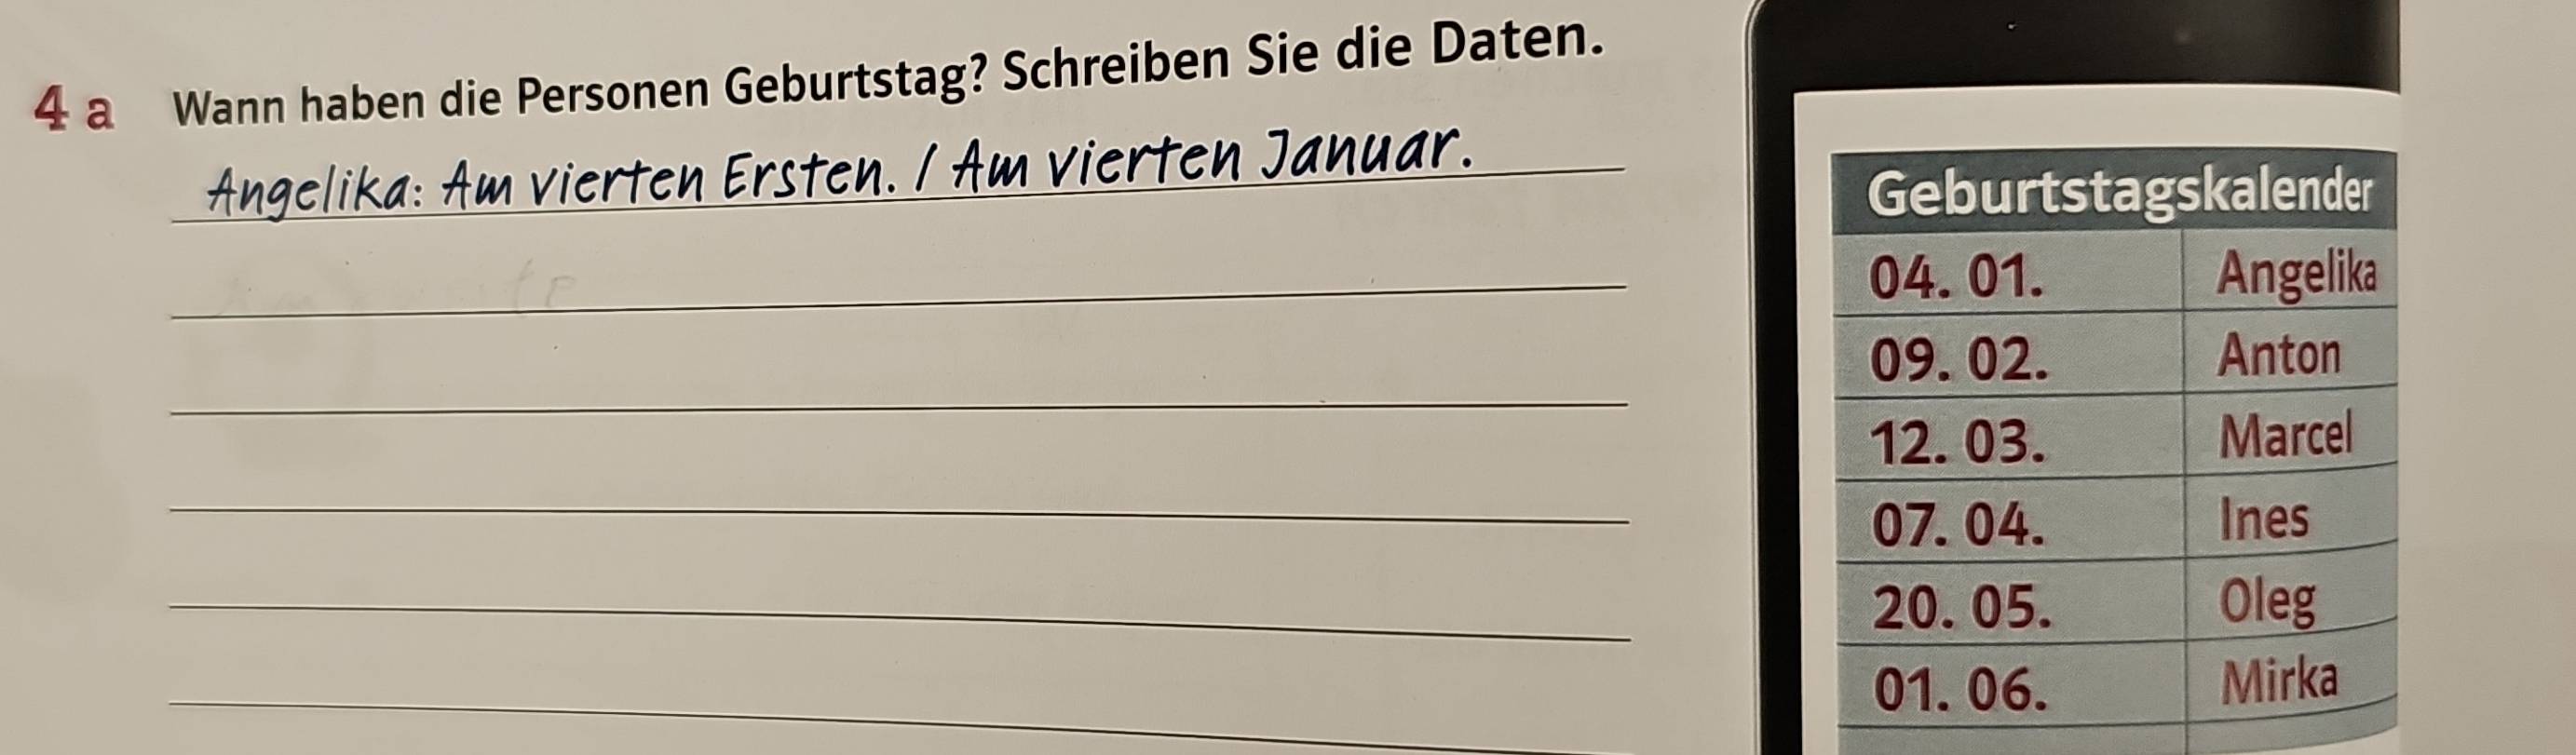 4 a Wann haben die Personen Geburtstag? Schreiben Sie die Daten.
Angelika: Am vierten Ersten. / Am vierten Januar.
Geburtstagskalender
04. 01. Angelika
09. 02. Anton
12. 03. Marcel
07. 04. Ines
20. 05. Oleg
01. 06. Mirka